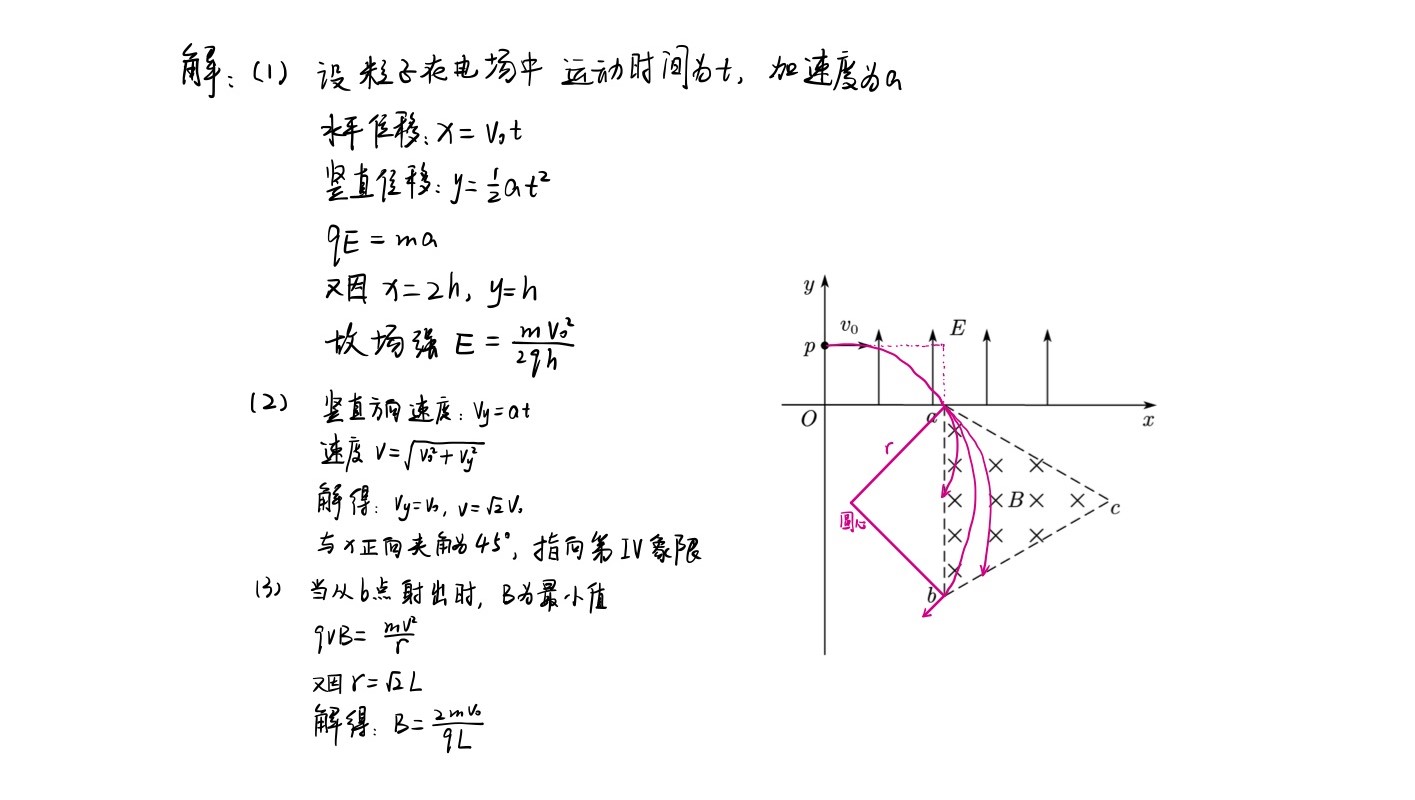 解：(1) 设粒子在电场中运动时间为t，加速度为a
水平位移：x = v₀t
竖直位移：y = ½at²
qE = ma
又因 x = 2h，y = h
故场强 E = mv₀²/2qh
(2) 竖直方向速度：Vy = at
速度 V = √(v₀² + vy²)
解得：Vy = v₀，v = √2 v₀
与x正向夹角为45°，指向第IV象限
(3) 当从b点射出时，B为最小值
qvB = mv²/r
又因 r = √2 L
解得：B = 2mv₀/qL
y
v₀
E
p
O
a
x
r
B
c
圆心
b